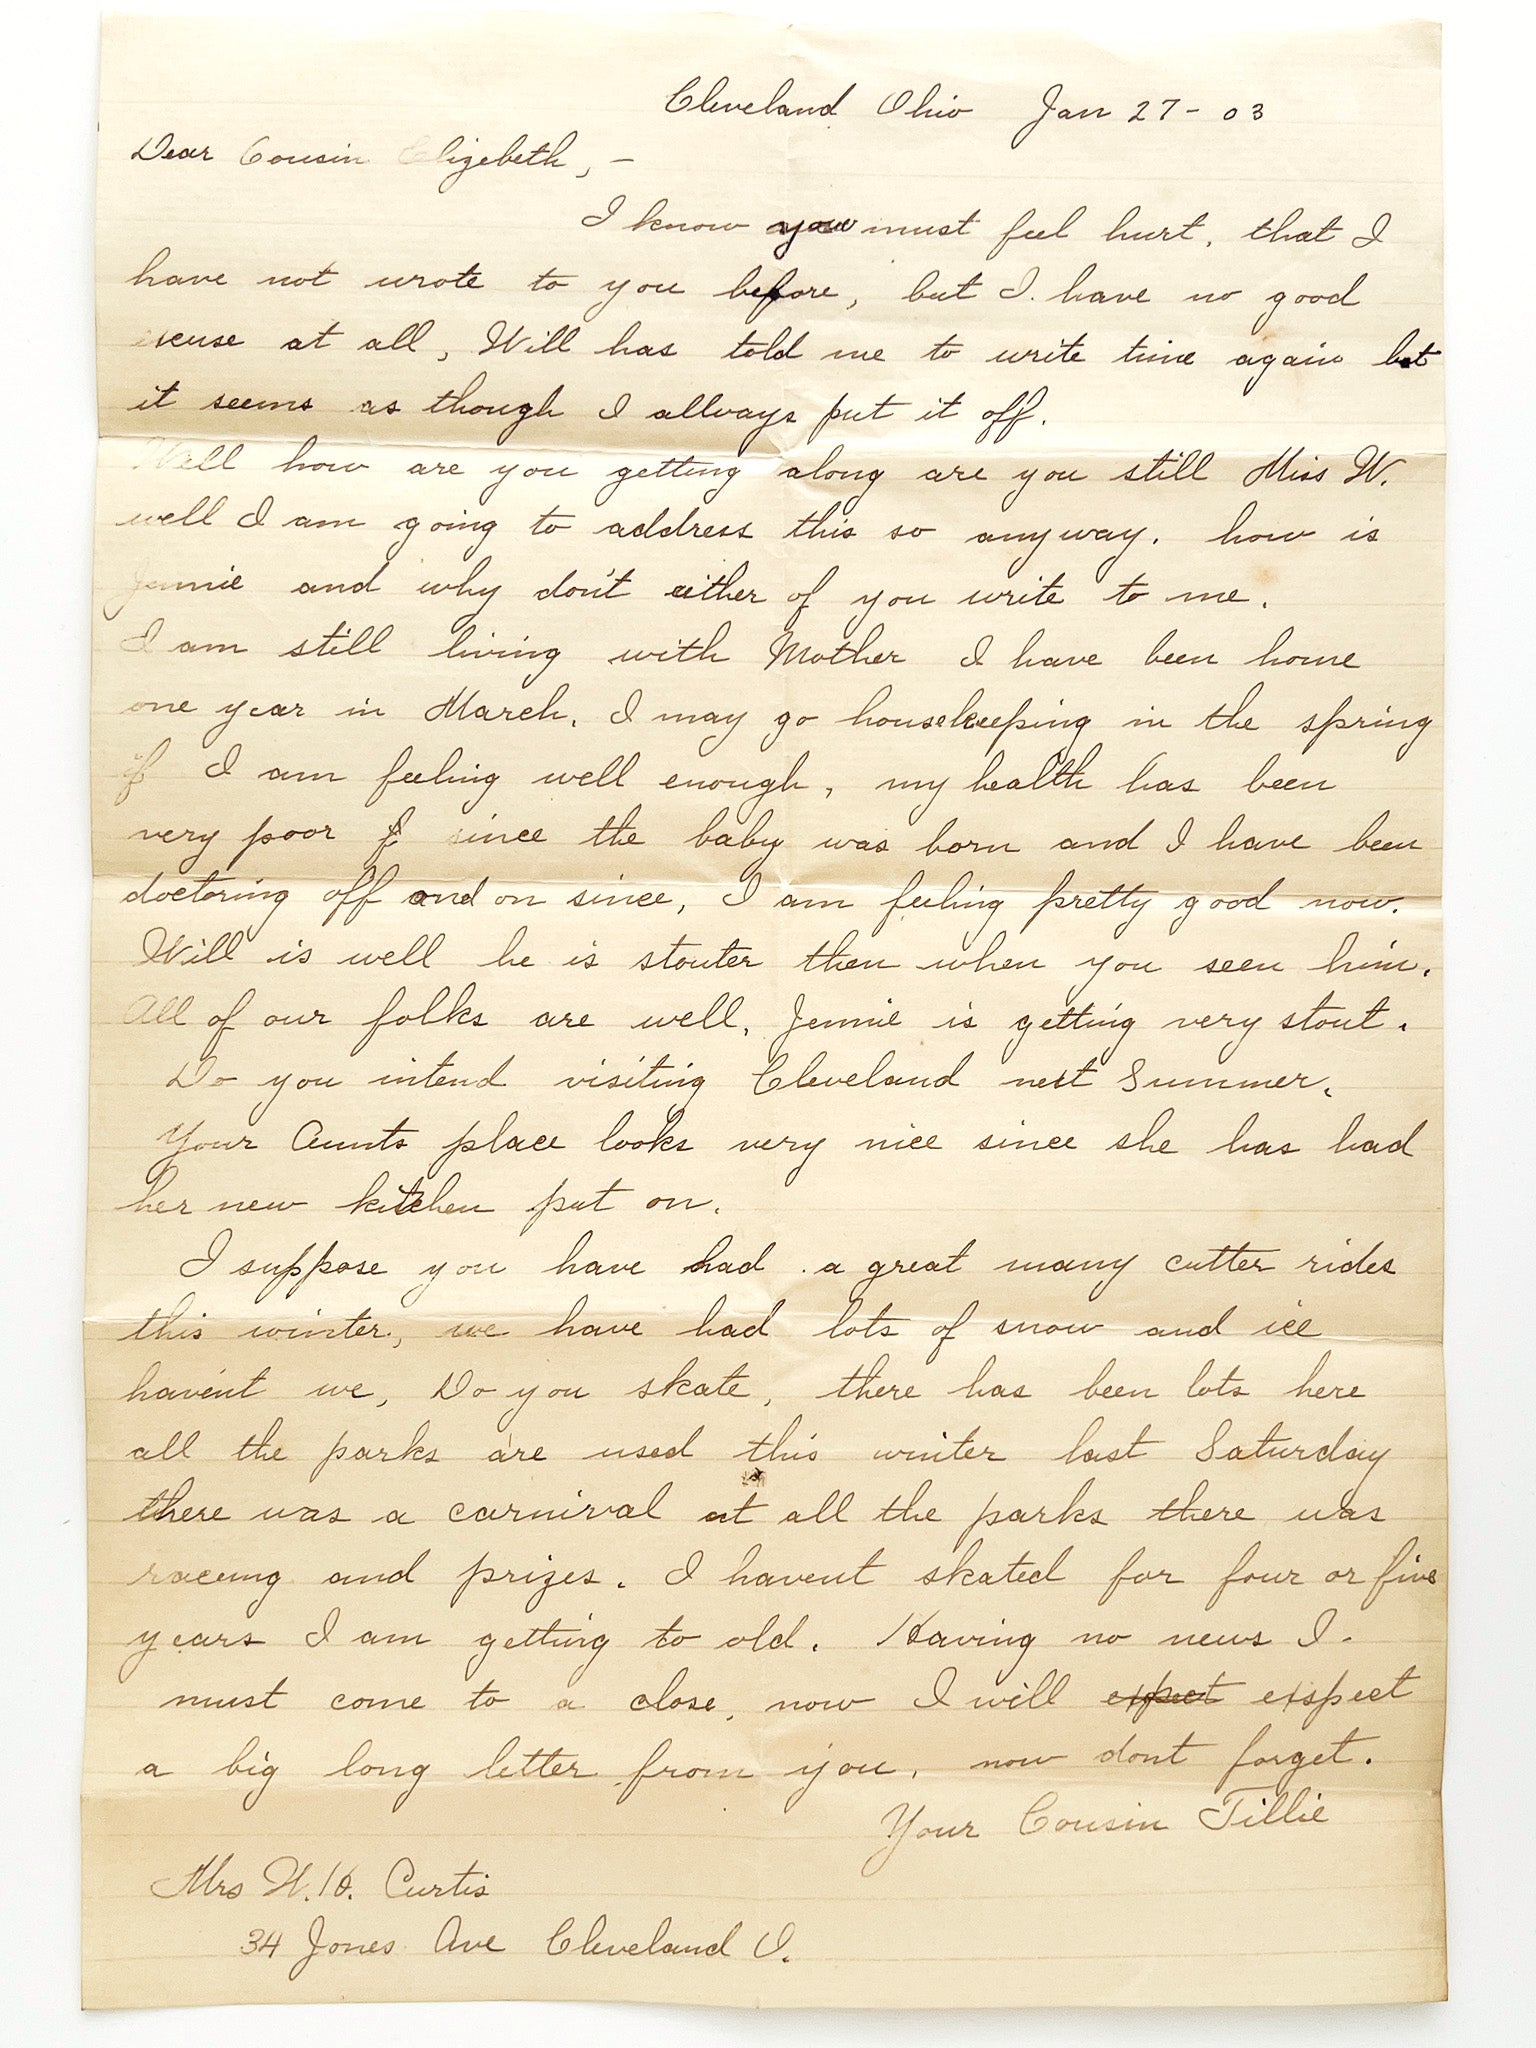 Cleveland Ohio Jan 27 - 03
Dear Cousin Elizebeth, -
I know you must feel hurt, that I
have not wrote to you before, but I have no good
excuse at all, Will has told me to write time again but
it seems as though I allways put it off.
Well how are you getting along are you still Miss W.
well I am going to address this so anyway. how is
Jennie and why don't either of you write to me.
I am still living with Mother I have been home
one year in March. I may go housekeeping in the spring
if I am feeling well enough, my health has been
very poor since the baby was born and I have been
doctoring off and on since, I am feeling pretty good now.
Will is well he is stouter then when you seen him.
All of our folks are well. Jennie is getting very stout.
Do you intend visiting Cleveland next Summer.
Your Aunts place looks very nice since she has had
her new kitchen put on.
I suppose you have had a great many cutter rides
this winter, we have had lots of snow and ice
haven't we, Do you skate, there has been lots here
all the parks are used this winter last Saturday
there was a carnival at all the parks there was
raceing and prizes. I havent skated for four or five
years I am getting to old. Having no news I
must come to a close, now I will expect exspect
a big long letter from you, now dont forget.
Your Cousin Tillie
Mrs W. H. Curtis
34 Jones Ave Cleveland O.